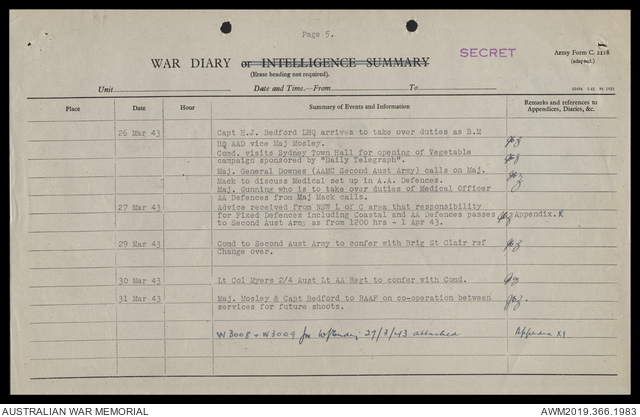 Page 5.
SECRET
Army Form C. 2118
(adapted.)
WAR DIARY or INTELLIGENCE SUMMARY
(Erase heading not required).
Unit Date and Time.—From To
Place Date Hour Summary of Events and Information Remarks and references to Appendices, Diaries, &c.
26 Mar 43 Capt H.J. Bedford LHQ arrives to take over duties as B.M
HQ AAD vice Maj Mosley.
Comd. visits Sydney Town Hall for opening of Vegetable
campaign sponsored by "Daily Telegraph".
Maj. General Downes (AAMC Second Aust Army) calls on Maj.
Mack to discuss Medical set up in A.A. Defences.
Maj. Gunning who is to take over duties of Medical Officer
AA Defences from Maj Mack calls.
27 Mar 43 Advice received from NSW L of C area that responsibility
for Fixed Defences including Coastal and AA Defences passes Appendix. X
to Second Aust Army as from 1200 hrs - 1 Apr 43.
29 Mar 43 Comd to Second Aust Army to confer with Brig St Clair ref
Change over.
30 Mar 43 Lt Col Myers 2/4 Aust Lt AA Regt to confer with Comd.
31 Mar 43 Maj. Mosley & Capt Bedford to RAAF on co-operation between
services for future shoots.
W3008 + W3009 for W/Ending 27/3/43 attached Appendix XI
AUSTRALIAN WAR MEMORIAL
AWM2019.366.1983